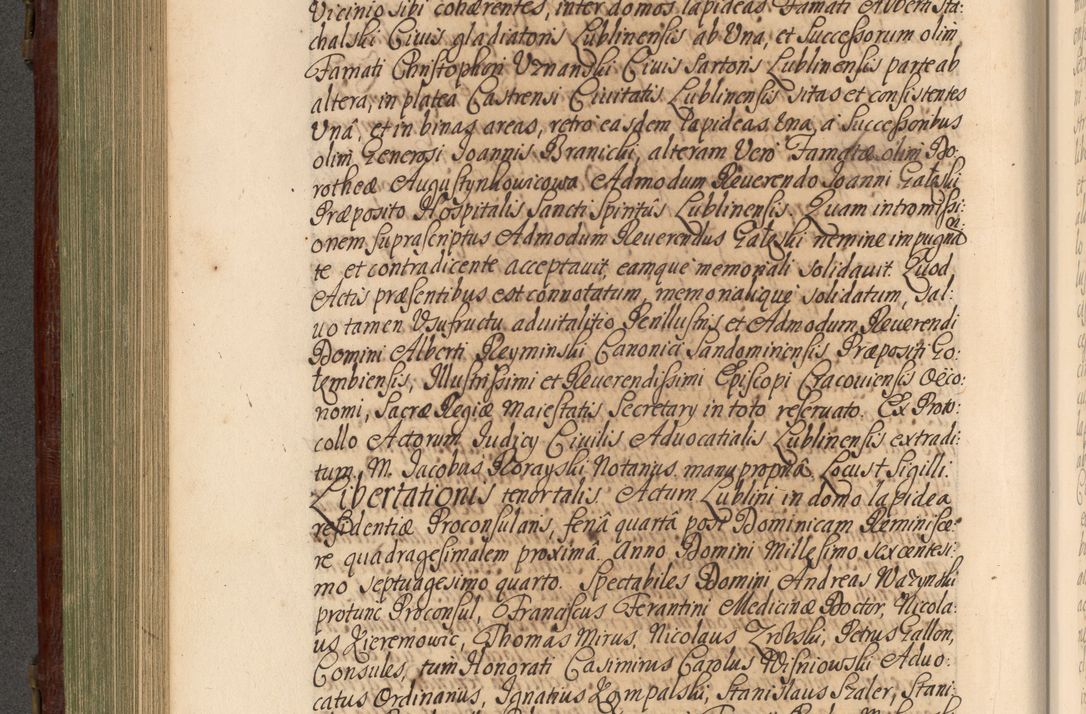 Vicinio sibi cohærentes, inter domos lapideas Famati Alberti Sta:
chalski Civis gladiatoris Lublinensis ab Una, et Successorum olim
Famati Christophori Uznanski Civis Sartoris Lublinensis parte ab
altera, in platea Castrensi Civitatis Lublinensis sitas et consistentes
Unâ, et in binas areas, retro easdem lapideas Una, a Successoribus
olim Generosi Joannis Branicki, alteram Vero Famatæ olim Do:
rotheæ Augustynkowicowa Admodum Reverendo Joanni Galęski
Præposito Hospitalis Sancti Spiritûs Lublinensis. Quam intromissi:
onem suprascriptus Admodum Reverendus Galęski nemine impugnan
te et contradicente acceptavit, eamque memoriali solidavit. Quod
Actis præsentibus est connotatum, memorialique solidatum, Sal:
vo tamen Usufructu advitalitio Perillustris et Admodum Reverendi
Domini Alberti Reyminski Canonici Sandomiriensis, Præpositi Go:
tembiensis, Illustrissimi et Reverendissimi Episcopi Cracoviensis Oeco:
nomi, Sacræ Regiæ Maiestatis Secretary in toto reservato. Ex Proto:
collo Actorum Judicy Civilis Advocatialis Lublinensis extradi:
tum, M. Jacobus Korayski Notarius manu propriâ. Locus t Sigilli.
Libertationis tenor talis. Actum Lublini in domo lapidea
residentiæ Proconsularis, feriâ quartâ post Dominicam Reminisce:
re quadragesimalem proximâ. Anno Domini Millesimo sexcentesi:
mo septuagesimo quarto. Spectabiles Domini Andreas Wazynski
protunc Proconsul, Franciscus Ferantini Medicinæ Doctor, Nicola:
us Kieremowic, Thomas Mirus, Nicolaus Zrobski, Petrus Gallon,
Consules, tum Honorati Casimirus Carolus Wisniowski Advo:
catus Ordinarius, Ignatius Kompalski, Stanislaus Szaler, Stani: